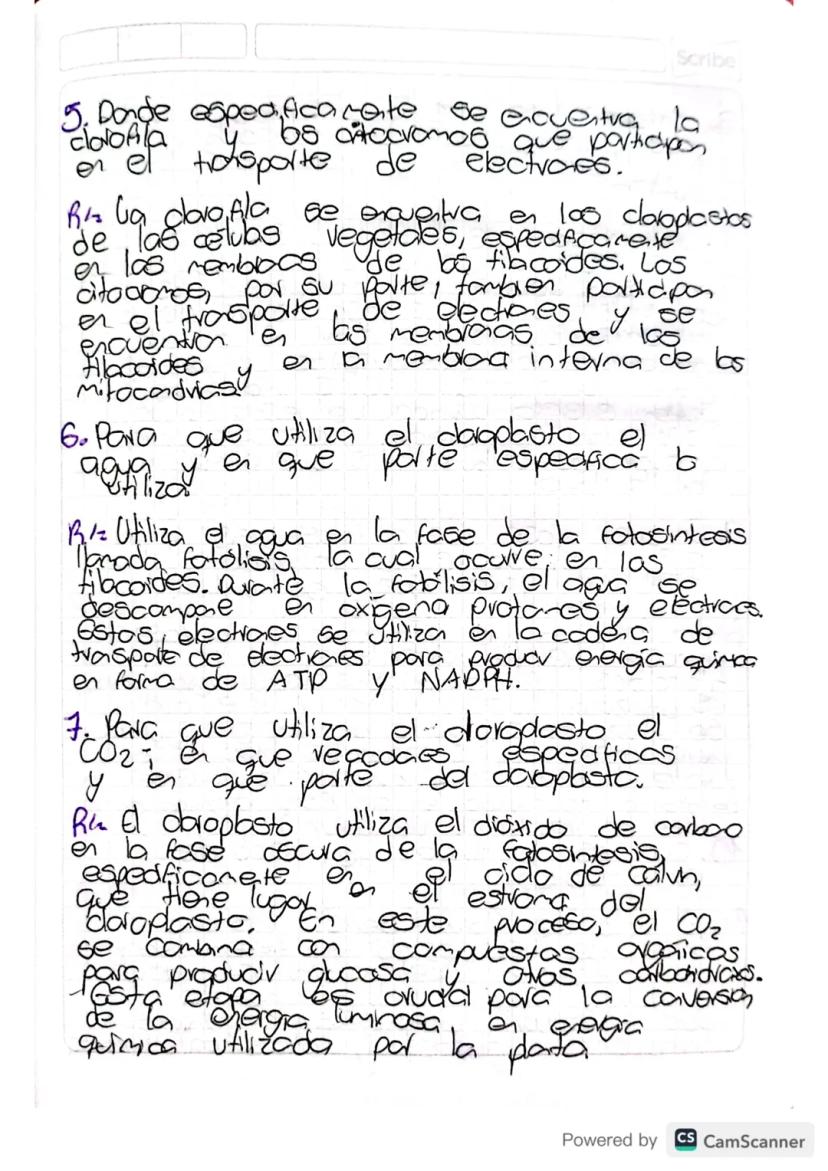 Scribe
5. Donde especificamente se encuentra la
clorofila y los citocromos que participan
en el transporte de electrones.
R/= La clorofila se encuentra en los cloroplastos
de las celulas vegetales, especificamente
en las membranas de los tilacoides. Los
citocromos, por su parte, tambien participan
en el transporte de electrones y se
encuentran en las membranas de los
tilacoides y en la membrana interna de las
mitocondrias.
6. Para que utiliza el cloroplasto el
agua y en que parte especifica lo
utiliza
R/= Utiliza el agua en la fase de la fotosintesis
llamada fotólisis, la cual ocurre en los
tilacoides. Durante la fotólisis, el agua se
descompone en oxigeno protones y electrones.
Estos electrones se utilizan en la cadena de
transporte de electrones para producir energía quimica
en forma de ATP y NADPH.
7. Para que utiliza el cloroplasto el
CO2; en que reacciones especificas
y en que parte del cloroplasto.
R/= El cloroplasto utiliza el dióxido de carbono
en la fase oscura de la fotosintesis,
especificamente en el ciclo de Calvin,
que tiene lugar en el estroma del
cloroplasto. En este proceso, el CO2
se combina con compuestos organicos
para producir glucosa y otros carbohidratos.
Esta etapa es crucial para la conversion
de la energia luminosa en energia
química utilizada por la planta
Powered by CS CamScanner